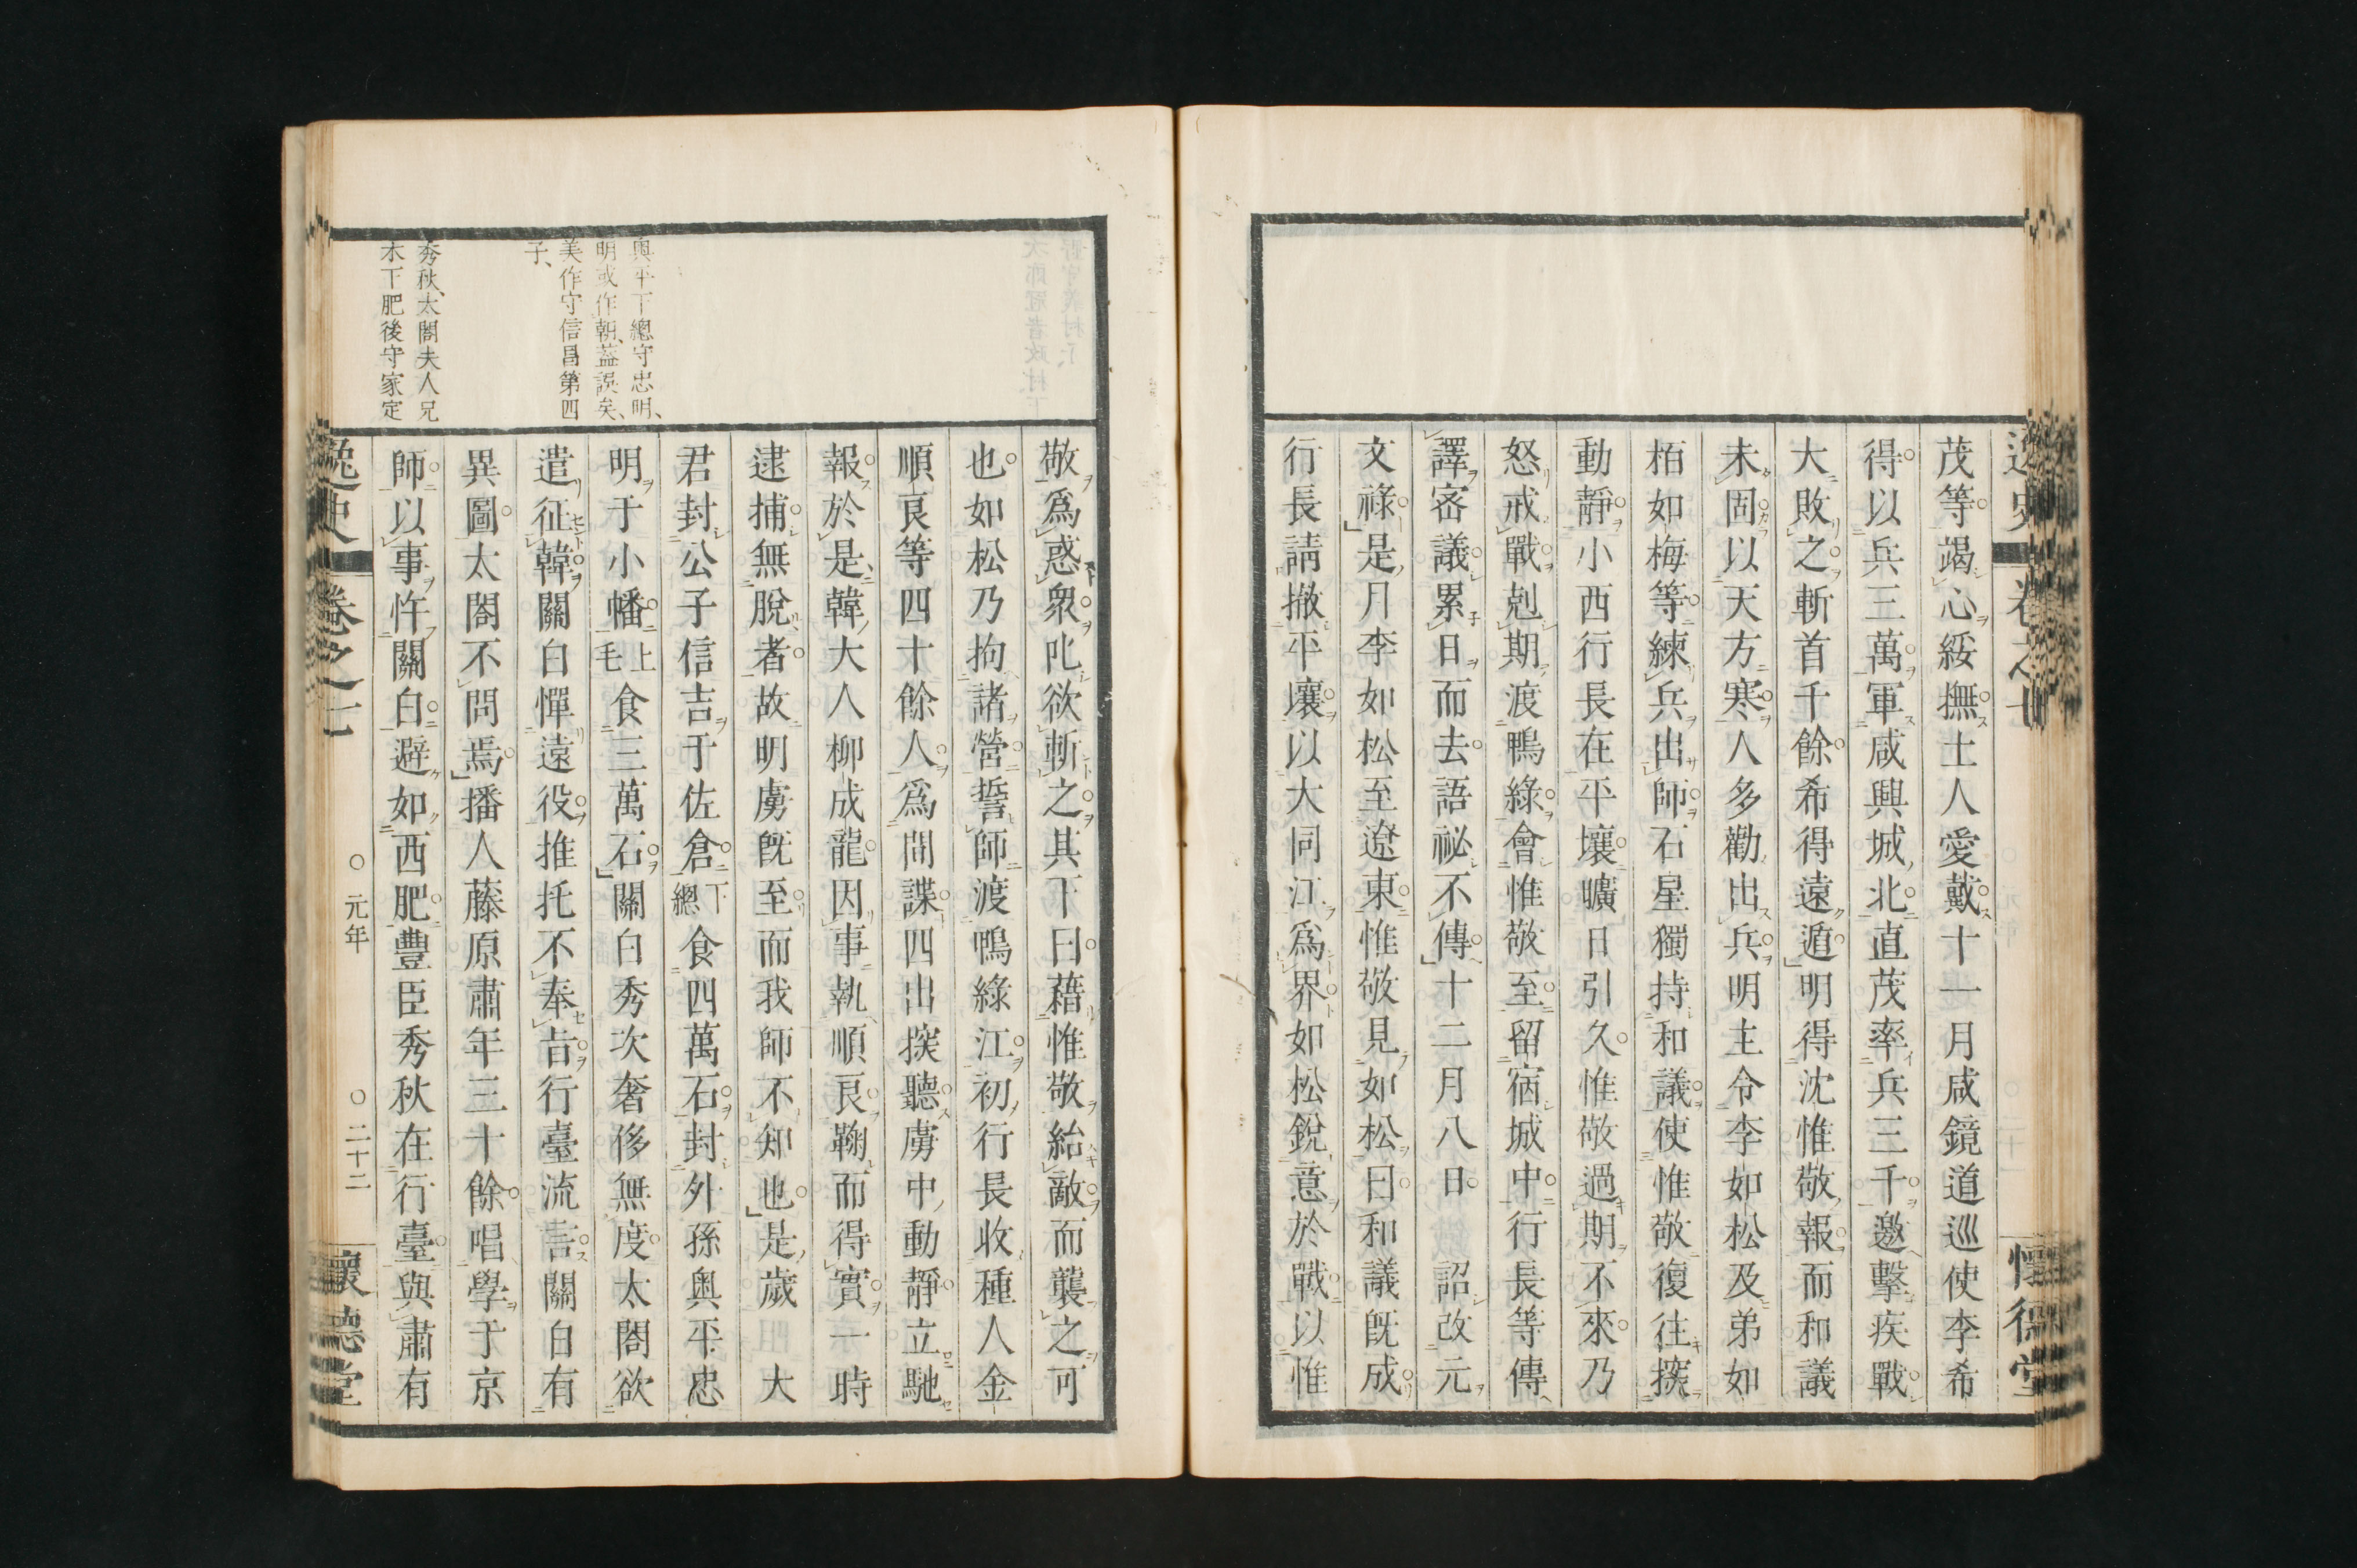 茂等竭心綏撫土人愛戴十一月咸鏡道巡使李希
得以兵三萬軍咸興城北直茂率兵三千邀擊疾戰
大敗之斬首千餘希得遠遁明得沈惟敬報而和議
未固以天方寒人多勸出兵明主令李如松及弟如
栢如梅等練兵出師石星獨持和議使惟敬復往探
動靜小西行長在平壤曠日引久惟敬過期不來乃
怒戒戰剋期渡鴨綠會惟敬至留宿城中行長等傳
譯密議累日而去語祕不傳十二月八日詔改元
文祿是月李如松至遼東惟敬見如松曰和議既成
行長請撤平壤以大同江爲界如松銳意於戰以惟
敬爲惑衆叱欲斬之其下曰藉惟敬紿敵而襲之可
也如松乃拘諸營誓師渡鴨綠江初行長收種人金
順良等四十餘人爲間諜四出探聽虜中動靜立馳
報於是韓大人柳成龍因事執順良鞫而得實一時
逮捕無脫者故明虜既至而我師不知也是歲大
君封公子信吉于佐倉下總食四萬石封外孫奧平忠
明于小幡上毛食三萬石關白秀次奢侈無度太閤欲
遣征韓關白憚遠役推托不奉旨行臺流言關白有
異圖太閤不問焉播人藤原肅年三十餘唱學于京
師以事忤關白避如西肥豐臣秀秋在行臺與肅有
奧平下總守忠明、
明或作朝、蓋誤矣、
美作守信昌第四
子、
秀秋、太閤夫人兄
木下肥後守家定
逸史
卷之七
元年
二十二
懷德堂